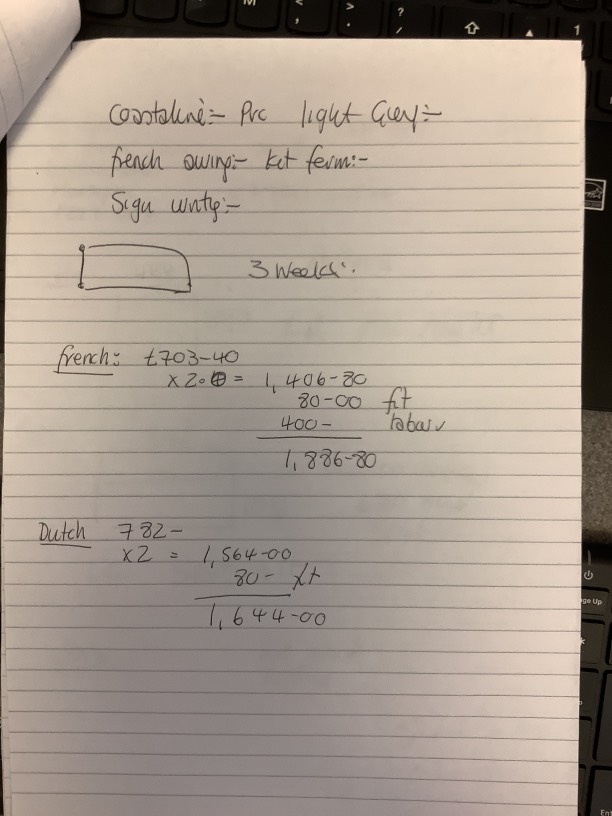 Coastaline:- Pvc light Grey:-
french awing:- kit ferm:-
Sign
3 Weeks:.
french: £703-40
x 2.0 = 1,406-80
80-00 fit
400- labour
1,886-80
Dutch 782-
x2 = 1,564-00
80- fit
1,644-00
M
< ,
> .
? /
1
ge Up